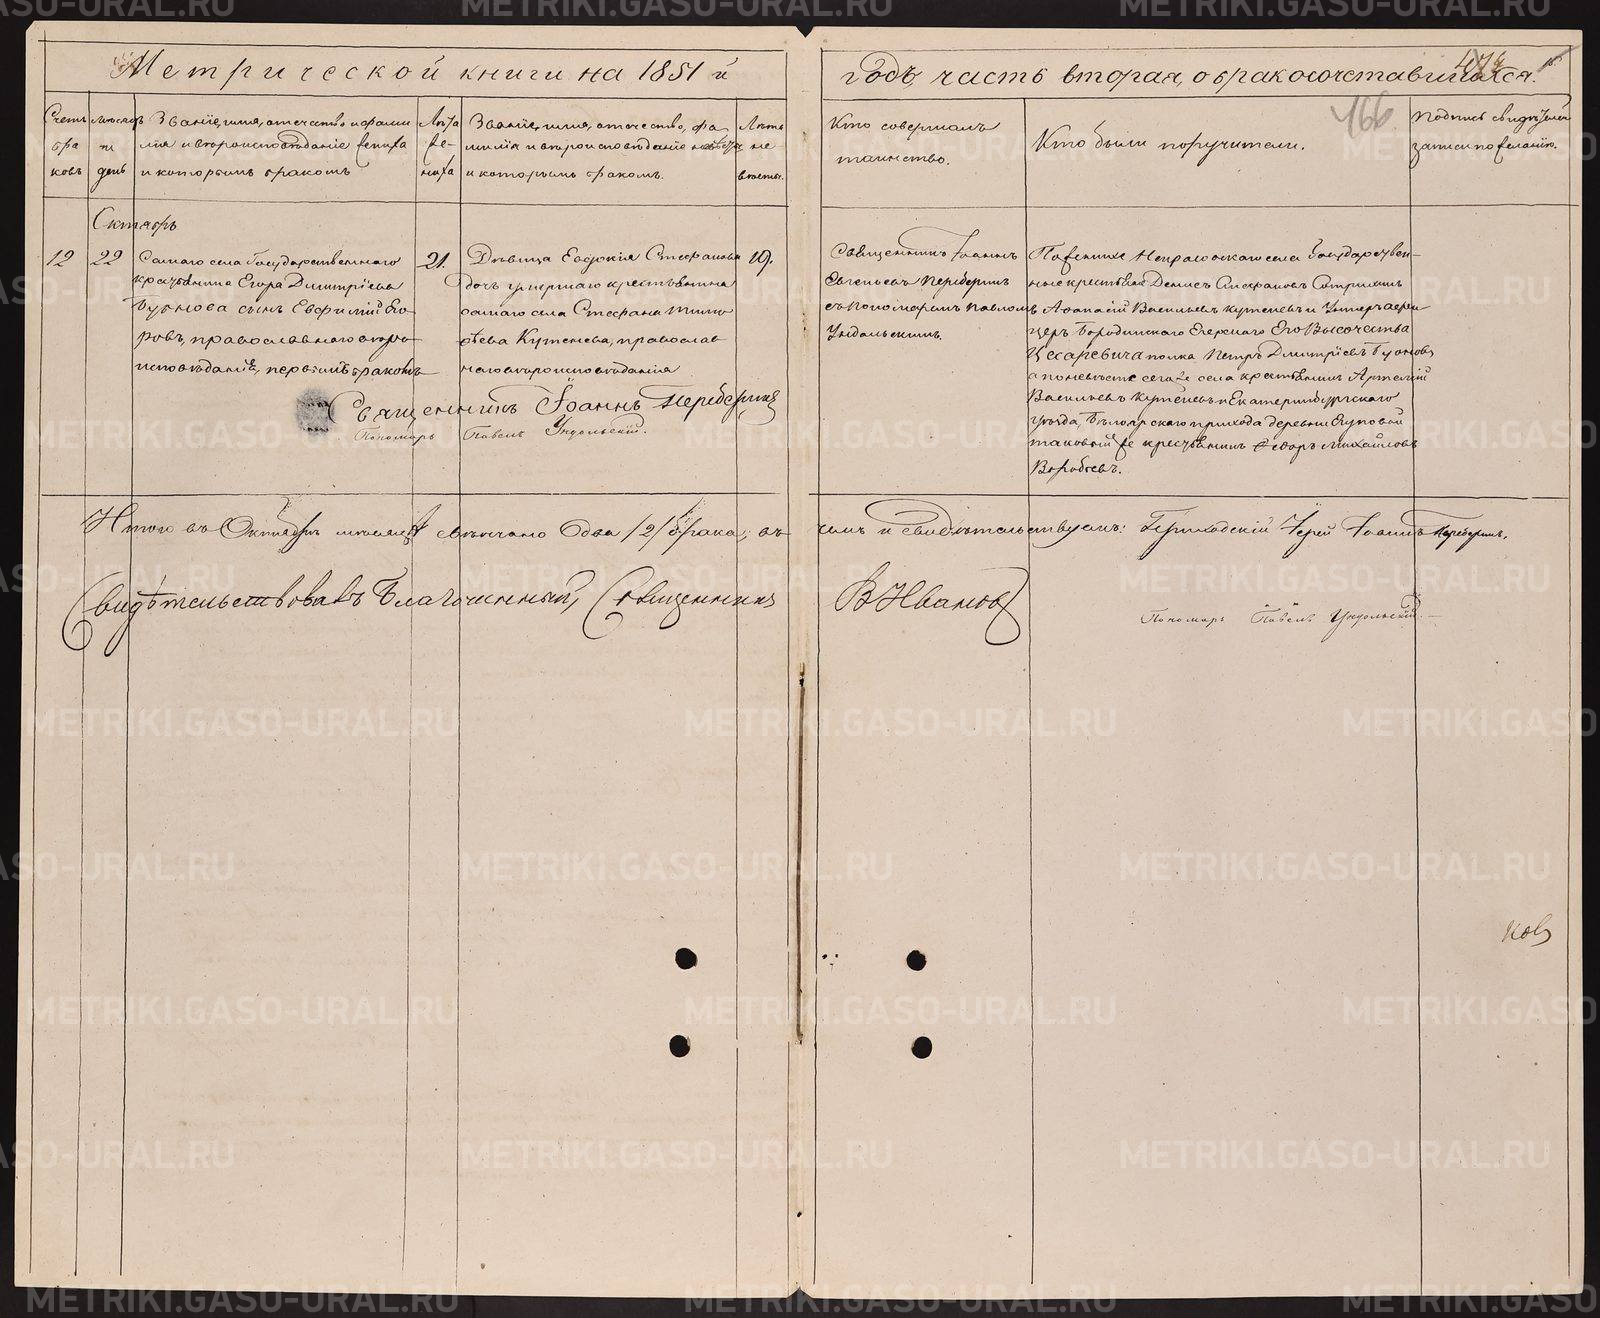 Метрической книги на 1851 й
годъ, часть вторая, о бракосочетавшихся.
166
Счетъ браковъ
мѣсяцъ и день
Званіе, имя, отечество и фамилія и вѣроисповѣданіе жениха и которымъ бракомъ
Лѣта жениха
Званіе, имя, отечество, фамилія и вѣроисповѣданіе невѣсты и которымъ бракомъ.
Лѣта невѣсты.
Кто совершалъ таинство.
Кто были поручители.
Подпись свидѣтелей записи по желанію.
Октябрь
12
22
Самаго села Государственнаго
крестьянина Егора Димитріева
сынъ Евфимій Его-
ровъ, православнаго вѣро-
исповѣданія, первымъ бракомъ
21.
Дѣвица Евдокія Стефанова
дочь умершаго крестьянина
самаго села Стефана Тимо-
ѳеева Кутенева, православ
наго вѣроисповѣданія
19.
Священникъ Іоаннъ
Евгеньевъ Переберинъ
съ пономаремъ Павломъ
Ундольскимъ.
По женихѣ села Государствен-
ные крестьяне Денисъ Стефановъ
Аѳанасій Васильевъ Кутеневъ и Унтеръ афи
церъ Бородинскаго Егерскаго Его Высочества
Цесаревича полка Петръ Димитріевъ
а по невѣстѣ сегоже села крестьянинъ Артемій
Васильевъ Кутеневъ и Екатеринбургскаго
уѣзда, Бѣлоярскаго прихода деревни
таковой же крестьянинъ Ѳедоръ Михайловъ
Воробьевъ.
Священникъ Іоаннъ Переберинъ
Пономарь Павелъ Ундольскій.
Итого въ Октябрѣ мѣсяцѣ свѣнчано Два /2/ брака; въ
чемъ и свидѣтельствуемъ: Приходскій Іерей Іоаннъ Переберинъ.
Свидѣтельствовалъ Благочинный, Священникъ
В Ивановъ
Пономарь Павелъ Ундольскій
ковъ
METRIKI.GASO-URAL.RU